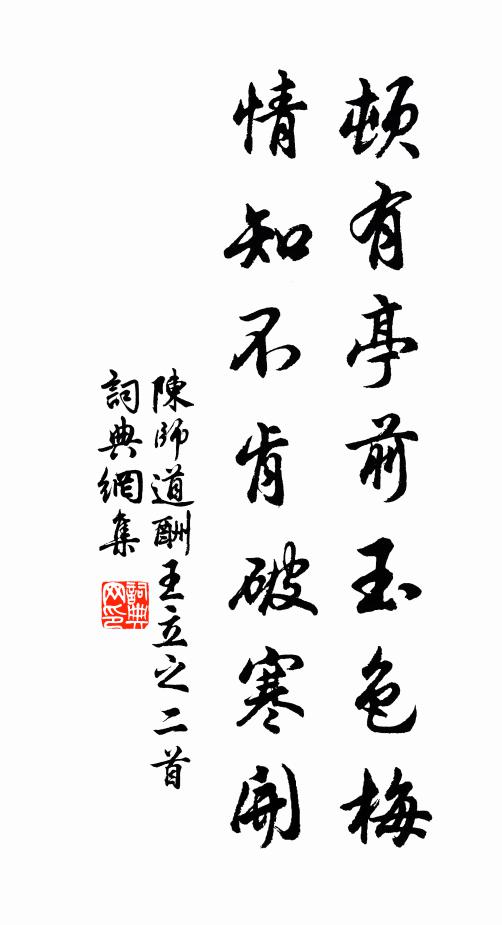 頓有亭前玉色梅
情知不肯破寒開
陳師道酬王立之二首
詞典網集
詞典网印